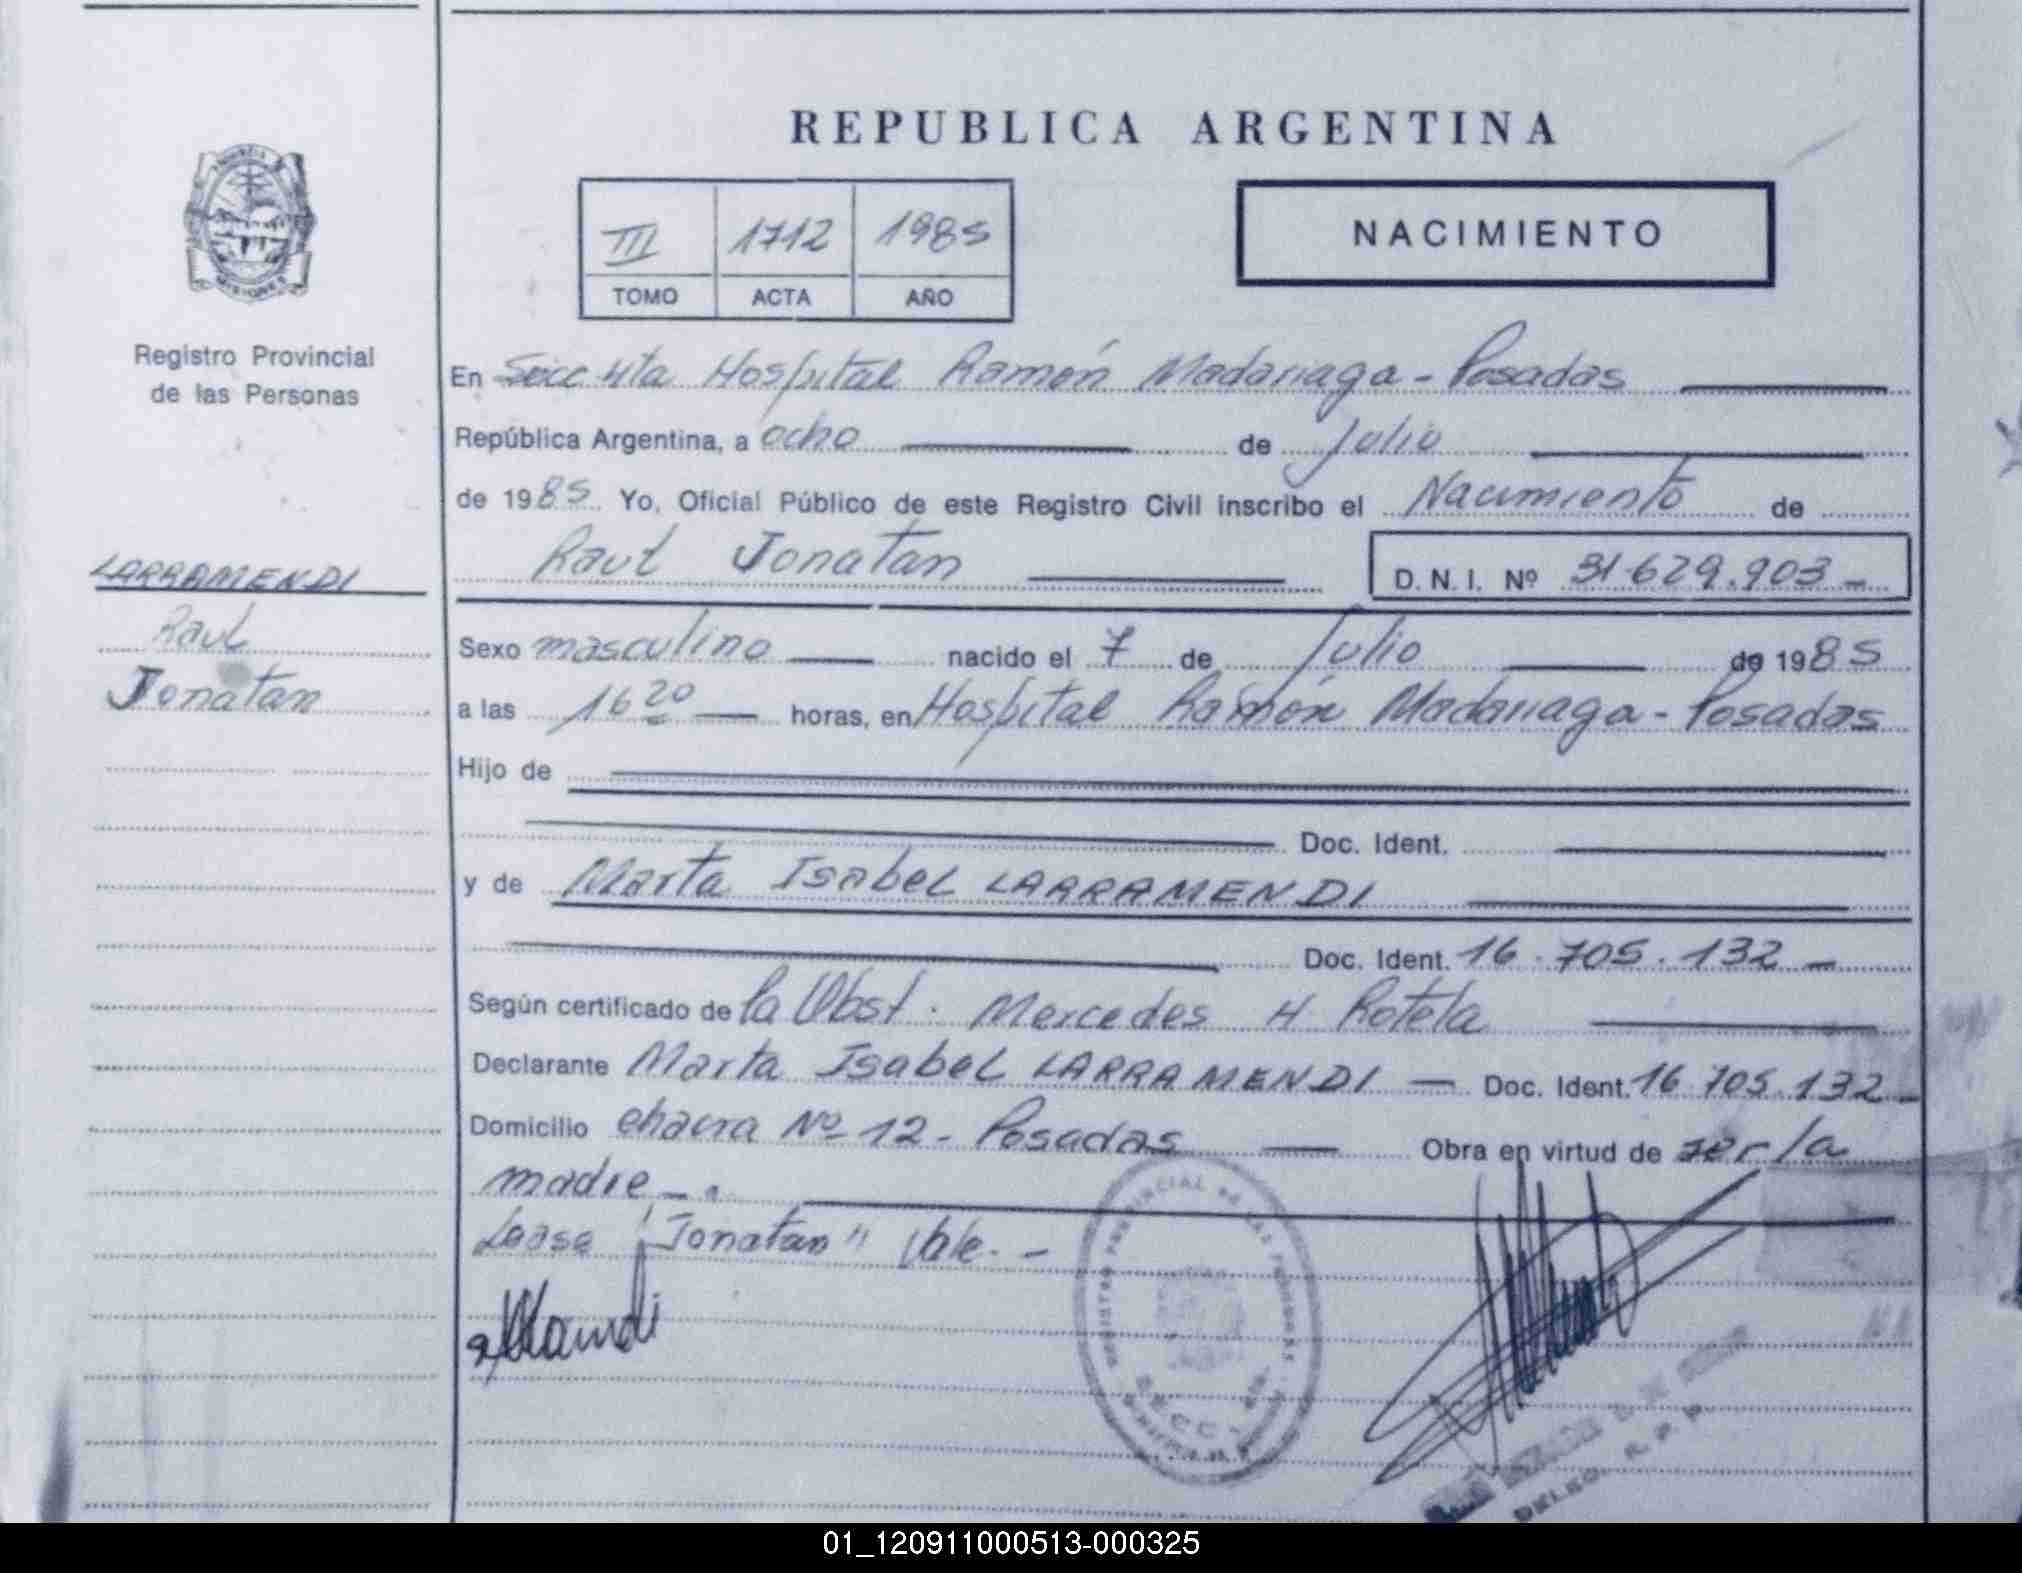 REPUBLICA ARGENTINA
III 1712 1985
TOMO ACTA AÑO
NACIMIENTO
MISIONES
Registro Provincial
de las Personas
LARRAMENDI
Raul
Jonatan
En Secc 4ta Hospital Ramón Madariaga - Posadas
República Argentina, a ocho de Julio
de 1985. Yo, Oficial Público de este Registro Civil inscribo el Nacimiento de
Raul Jonatan D.N.I. Nº 31.629.903 -
Sexo masculino nacido el 7 de Julio de 1985
a las 16 20 horas, en Hospital Ramón Madariaga - Posadas
Hijo de
Doc. Ident.
y de Marta Isabel LARRAMENDI
Doc. Ident. 16.705.132 -
Según certificado de la Obst. Mercedes H Rotela
Declarante Marta Isabel LARRAMENDI - Doc. Ident. 16.705.132 -
Domicilio chacra Nº 12 - Posadas Obra en virtud de ser la
madre - .
Lease "Jonatan" Vale. -
REGISTRO PROVINCIAL DE LAS PERSONAS
SECC. 4ta.
DELEG. R. P. P.
01_120911000513-000325